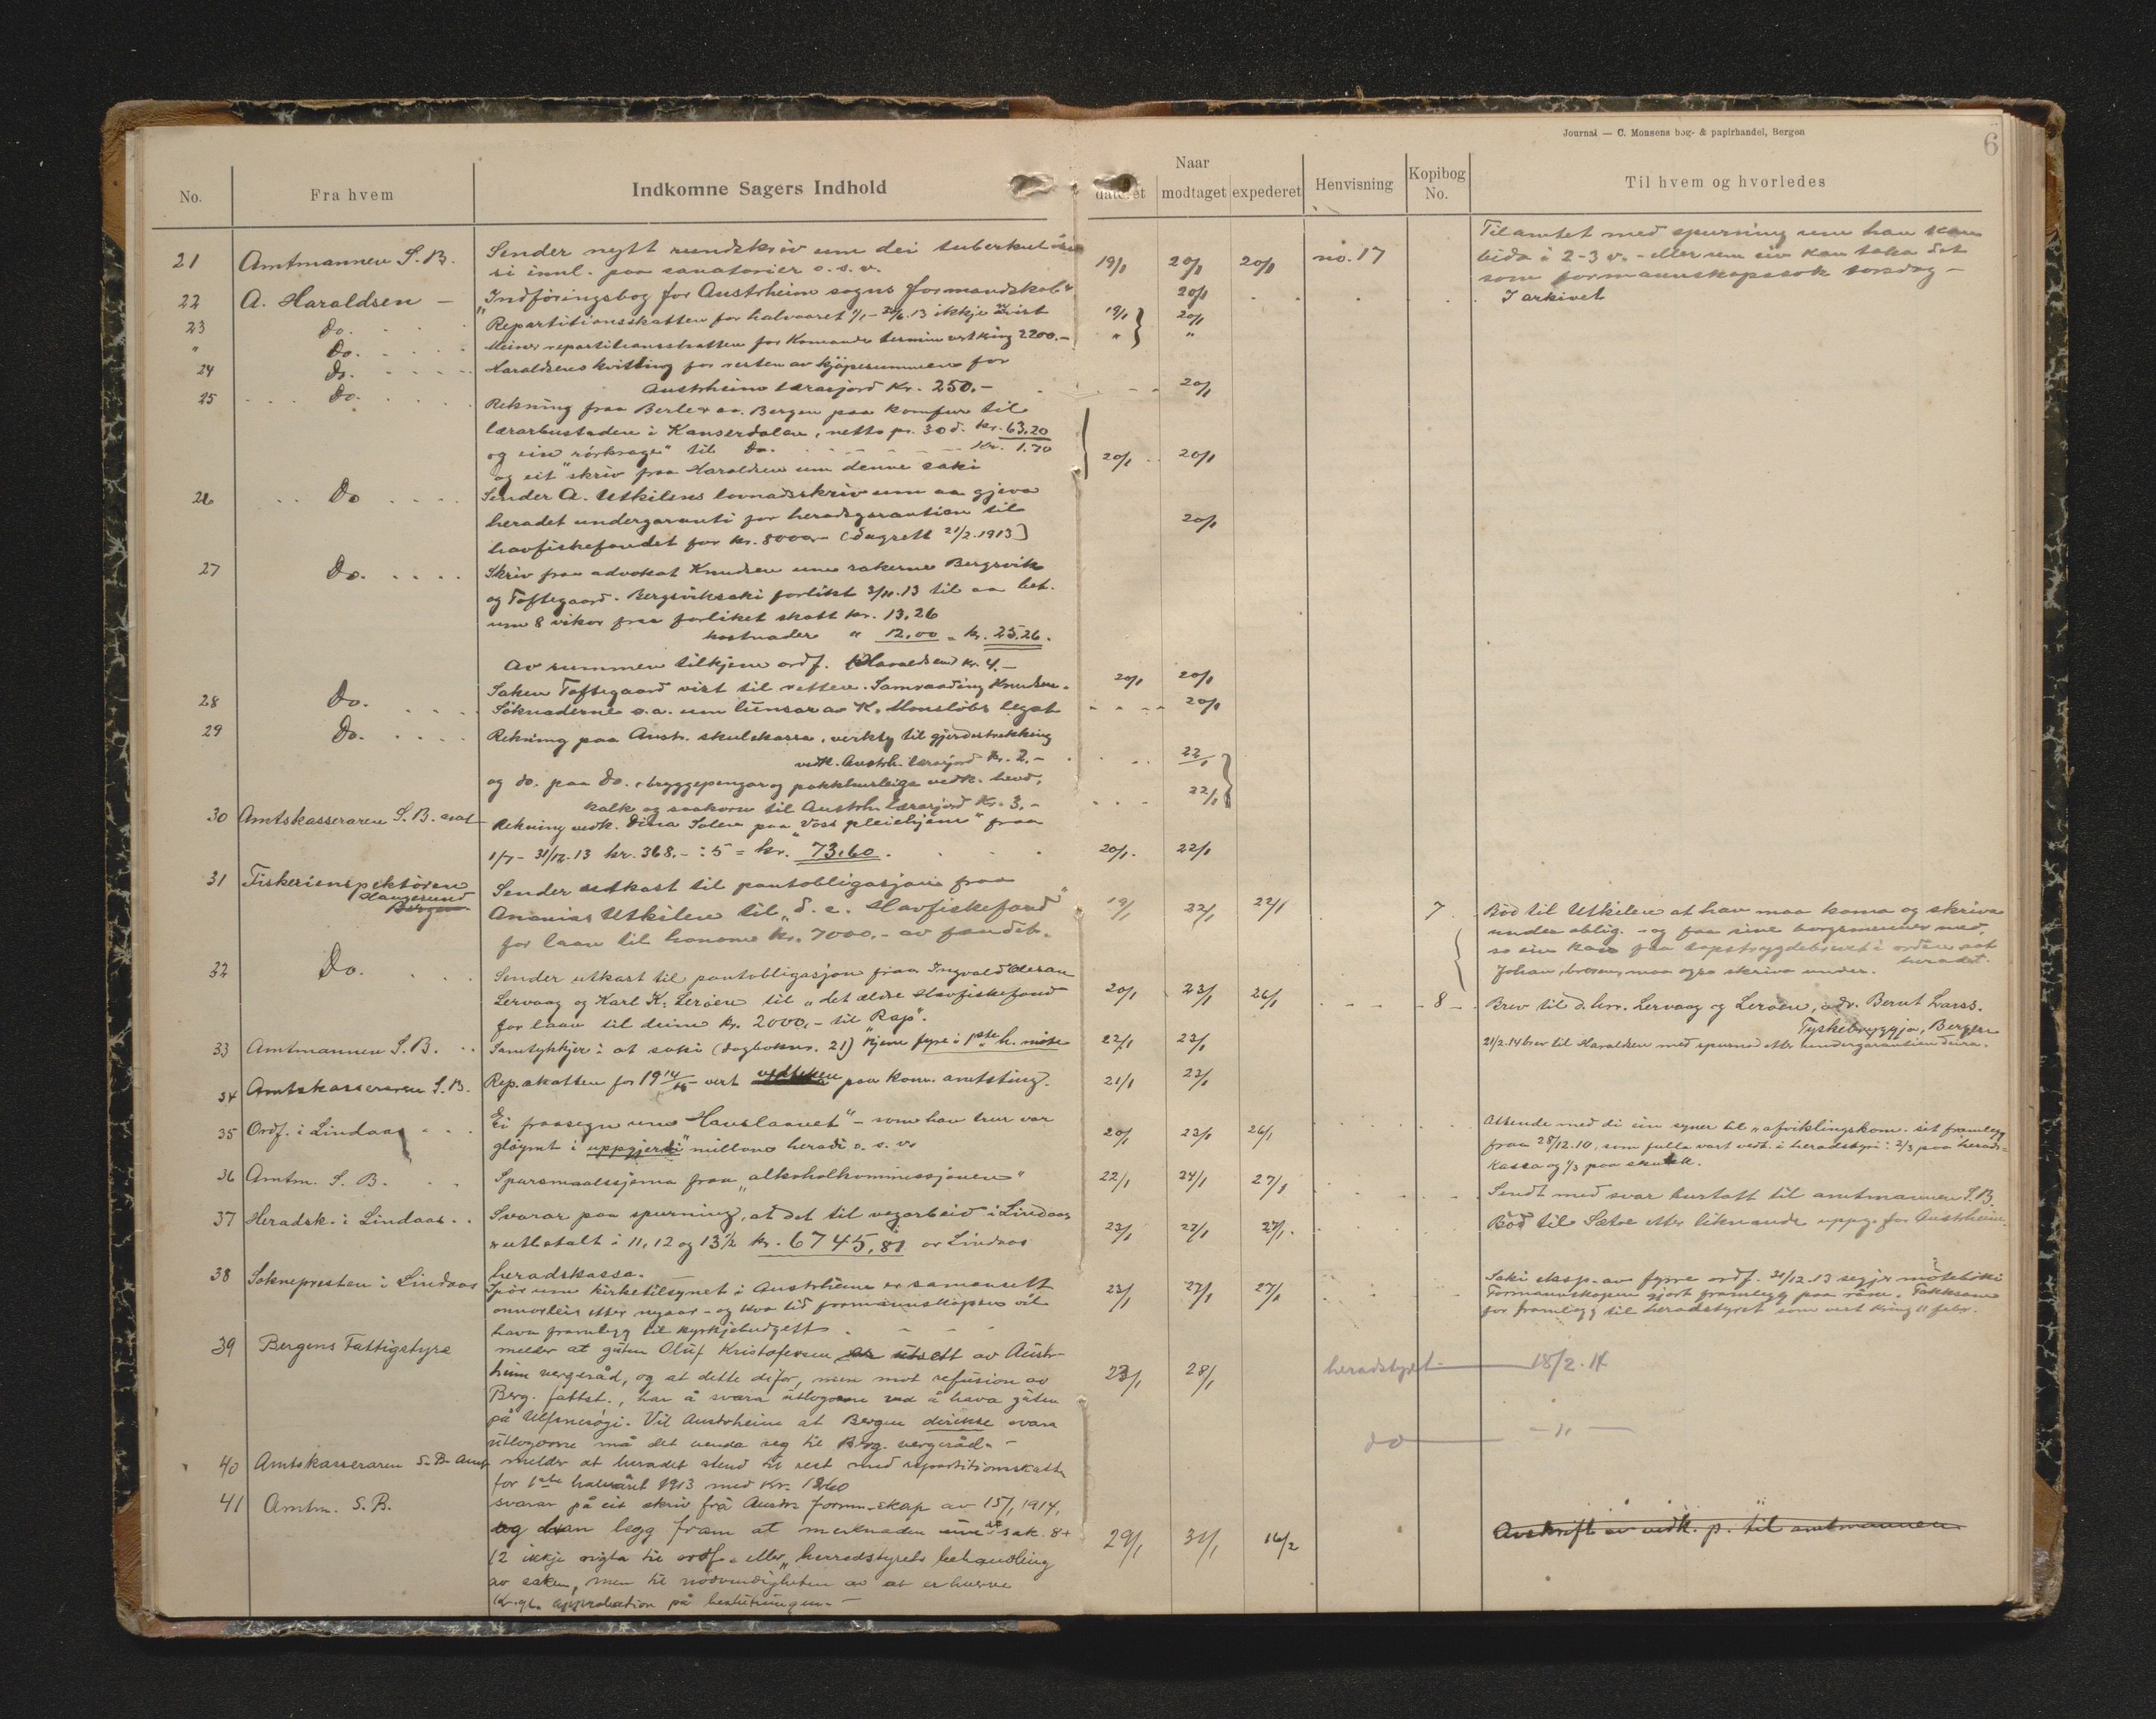 Journal — C. Monsens bog- & papirhandel, Bergen
6
No.
Fra hvem
Indkomne Sagers Indhold
Naar
dateret
modtaget
expederet
Henvisning
Kopibog No.
Til hvem og hvorledes
21 Amtmannen S. B. Sender nytt rundskriv um dei tuberkuløse 19/1 20/1 20/1 no. 17 Til amtet med spurning um han kan
si innl. paa sanatorier o. s. v. bida i 2-3 v. - eller um ein kan taka det
som formannskapssak torsdag -
22 A. Haraldsen — "Indföringsbog for Austrheim sogns formandskab" 20/1 I arkivet
23 Do. Repartitionsskatten for halvaaret 1/1 - 30/6 13 ikkje 19/1 20/1
" Do. Meiner repartitionsskatten for komande termin vert kring 2200.- " "
24 Do. Haraldsens kvitting for resten av kjöpesummen for
Austrheim lærarjord Kr. 250.- 20/1
25 Do. Rekning fraa Berle & co. Bergen paa komfur til
lærarbustaden i Kanserdalen, netto pr. 30 d. kr. 63,20
og ein "rörkrage" til Do. Kr. 1.70
og eit skriv fraa Haraldsen um denne saki 20/1 20/1
26 Do Sender A. Utkilens lovnadsskriv um aa gjeva
heradet undergaranti for heradsgarantien til 20/1
havfiskefondet for kr. 8000,- (dagsett 21/2. 1913)
27 Do. Skriv fraa advokat Knudsen um sakerne Bergsvik
og Toftegaard. Bergsviksaki forlikt 3/11.13 til aa bet.
um 8 vikor fraa forliket skatt kr. 13,26
kostnader " 12,00 = kr. 25,26.
Av summen tilkjem ordf. (Haraldsen) kr. 4.-
Saken Toftegaard vist til retten. Samraading Knudsen. 20/1 20/1
28 Do. Söknaderne o.a. um lunsar av K. Monslöbs legat 20/1
29 Do. Rekning paa Austr. skulekassa, verkty til gjerdestrekking
vedk. Austrh. lærarjord Kr. 2.- 22/1
og do. paa do. bryggepengar og pakkhusleiga vedk.
kalk og saakorn til Austrh. lærarjord Kr. 3.- 22/1
30 Amtskasseraren S. B. amt Rekning vedk. Dina Solem paa "Voss pleiehjem" fraa
1/7 - 31/12.13 kr. 368.- : 5 = kr. 73,60. 20/1. 22/1
31 Fiskeriinspektören Sender utkast til pantobligasjon fraa
Haugesund Bergen Ananias Utkilen til "d. e. Havfiskefond" 19/1 22/1 22/1 7 Bod til Utkilen at han maa koma og skriva
for laan til honom kr. 7000.- av fondet. under oblig. - og faa sine borgsmenner med,
so ein kan faa i orden aat
heradet.
Johan, broren, maa ogso skriva under.
32 Do. Sender utkast til pantobligasjon fraa Ingvald
Lervaag og Karl K. Leröen til "det ældre Havfiskefond 20/1 23/1 26/1 8 Brev til d. hrr. Lervaag og Leröen, adr. Bernt Larss.
for laan til deim kr. 2000,- til "Rap". Tyskebryggja, Bergen
33 Amtmannen S. B. Samtykkjer i at saki (dagboknr. 21) kjem fyre i 1ste h. möte 22/1 23/1 21/2.14 brev til Haraldsen med spurnad etter undergarantien deira.
34 Amtskasseraren S. B. Rep.skatten for 1914/15 vert vedteken paa kom. amtsting. 21/1 23/1
35 Ordf. i Lindaas Ei fraasegn um "Hauslaanet" - som han trur var 20/1 23/1 26/1 Attende med di ein syner til "afviklingskom. sit framlegg
glöymt i "uppgjerdi" millom heradi o. s. v. fraa 28/12.10, som fulla vart vedt. i heradstyri: 2/3 paa herads-
kassa og 1/3 paa skulek.
36 Amtm. S. B. Spursmaalsskjema fraa "alkoholkommissjonen" 22/1 24/1 27/1 Sendt med svar burtaft til amtmannen S. B.
37 Heradsk. i Lindaas Svarar paa spurning, at det til vegarbeid i Lindaas 23/1 27/1 27/1. Bod til Sætre etter liknande uppg. for Austrheim.
er utbetalt i 11, 12 og 13 1/2 kr. 6745,81 av Lindaas
heradskassa.
38 Soknepresten i Lindaas Spör um kirketilsynet i Austrheim er samansett 23/1 27/1 27/1 Saki eksp. av fyrre ordf. 31/12.13 segjer möteboki
onnorleis etter nyaar - og kva tid formannskapen vil Formannskapen gjort framlegg paa Takksam
hava framlegg til kyrkjebudgett for framlegg til heradstyret som vert kring 11 febr.
39 Bergens Fattigstyre melder at guten Oluf Kristofersen er utsett av Austr-
heim vergeråd, og at dette difor, men mot refusion av 23/1 28/1 heradstyret 18/2. 14
Berg. fattst., har å svara utlogorne ved å hava guten
på Ulfsnesøgi. Vil Austrheim at Bergen direkte svara
utlogorne må det venda seg til Brg. vergeråd. do - " -
40 Amtskasseraren S. B. Amt melder at heradet stend til rest med repartitionsskatten
for 1ste halvåret 1913 med Kr. 1260
41 Amtm. S. B. svarar på eit skriv frå Austr. formn.skap av 15/1 1914,
og han legg fram at merknaden sak. 8 + 29/1 31/1 16/2 Avskrift av vedk. p. til amtmannen
12 ikkje sigta til ordf. eller "herredstyrets behandling
av saken, men til nödvendigheten av at erhverve
Kgl. approbation på beslutningen. -